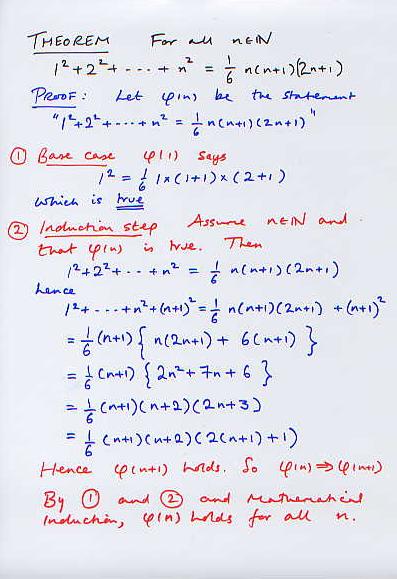 THEOREM For all n∈ℕ
1² + 2² + - - - + n² = 1/6 n(n+1)(2n+1)
PROOF : Let φ(n) be the statement
"1² + 2² + - - - + n² = 1/6 n(n+1)(2n+1)"
① Base case φ(1) says
1² = 1/6 1×(1+1)×(2+1)
which is true
② Induction step Assume n∈ℕ and
that φ(n) is true. Then
1² + 2² + - - + n² = 1/6 n(n+1)(2n+1)
hence
1² + - - - + n² + (n+1)² = 1/6 n(n+1)(2n+1) + (n+1)²
= 1/6 (n+1) { n(2n+1) + 6(n+1) }
= 1/6 (n+1) { 2n² + 7n + 6 }
= 1/6 (n+1)(n+2)(2n+3)
= 1/6 (n+1)(n+2)(2(n+1)+1)
Hence φ(n+1) holds. So φ(n) ⇒ φ(n+1)
By ① and ② and Mathematical
Induction, φ(n) holds for all n.